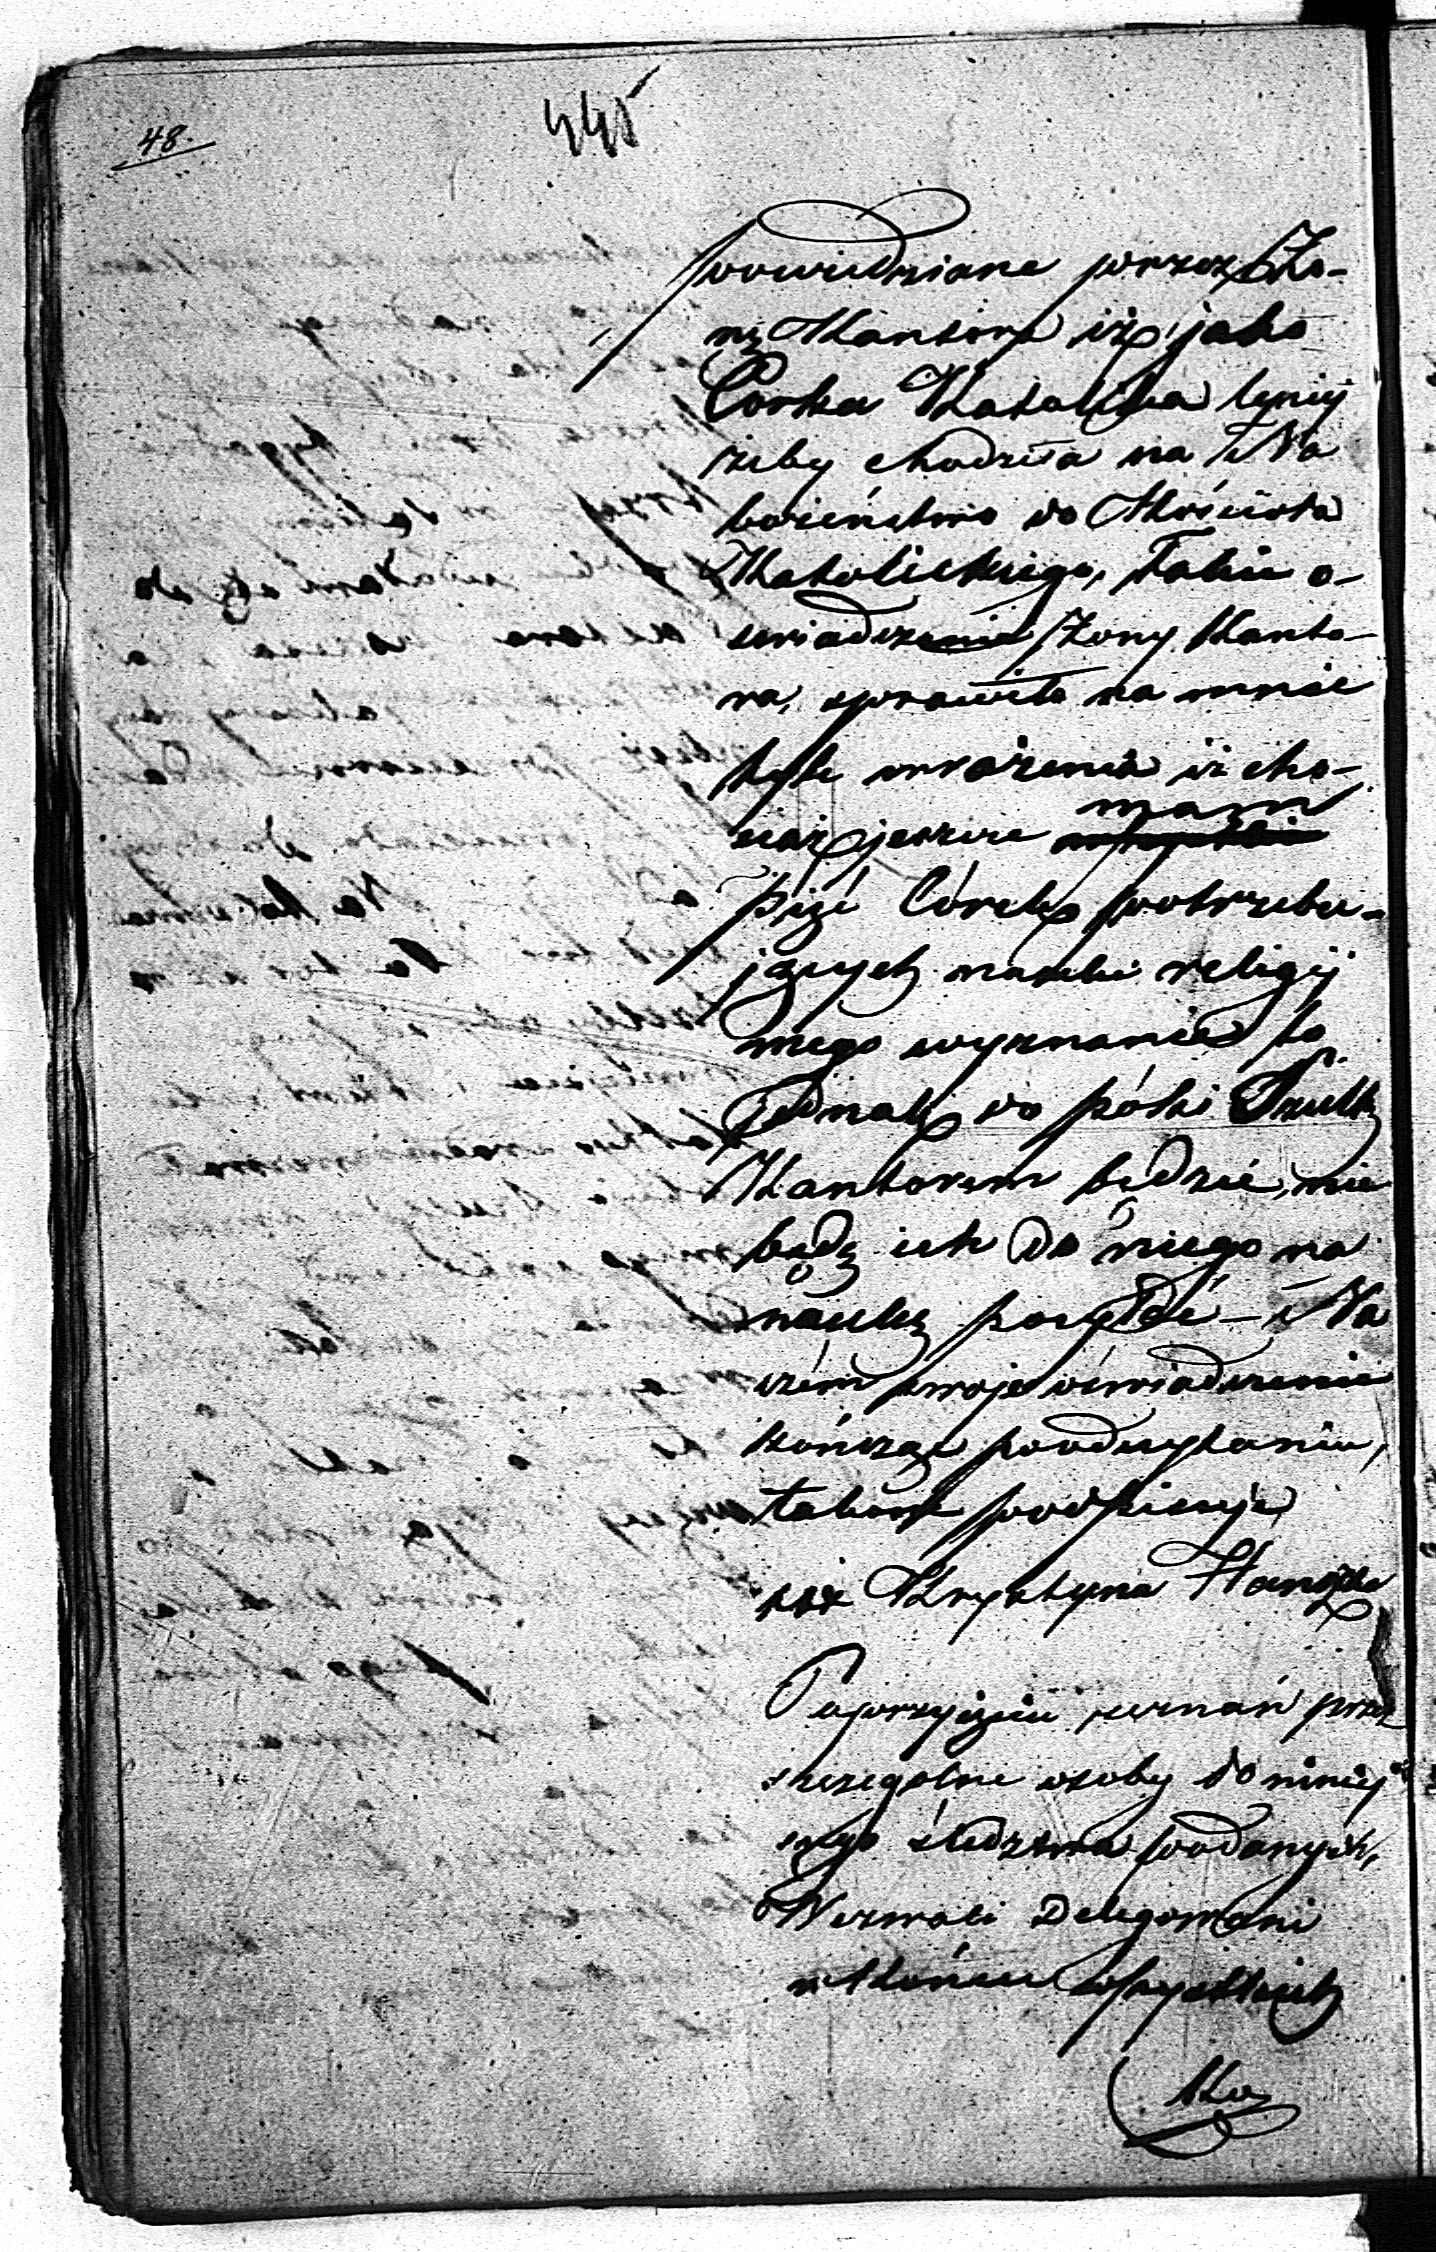 48.
445
powiedziane przez Żo-
nę Kantora iż jako
Corka Katolika lepiej
żeby chodziła na Na
bożeństwo do Kościoła
Katolickiego, Takie o-
swiadczenie Żony Kanto-
ra, sprawiło na mnie
tyle wrażenia iż cho-
ciaż jeszcze mam
pięć Córek potrzebu-
jących nauki religij
mego wyznania to
Jednak do póki Truell
Kantorem będzie, nie
będę ich do niego na
naukę posyłać – Na
czém swoje oświadczenie
kończąc po odczytaniu,
takowe podpisuje
xxx Krystyna Hancke
Po przyjęciu zeznań przez
szczególne osoby do niniej
szego śledztwa podanych,
Wezwali Delegowani
w Końcu wszystkich
Ko